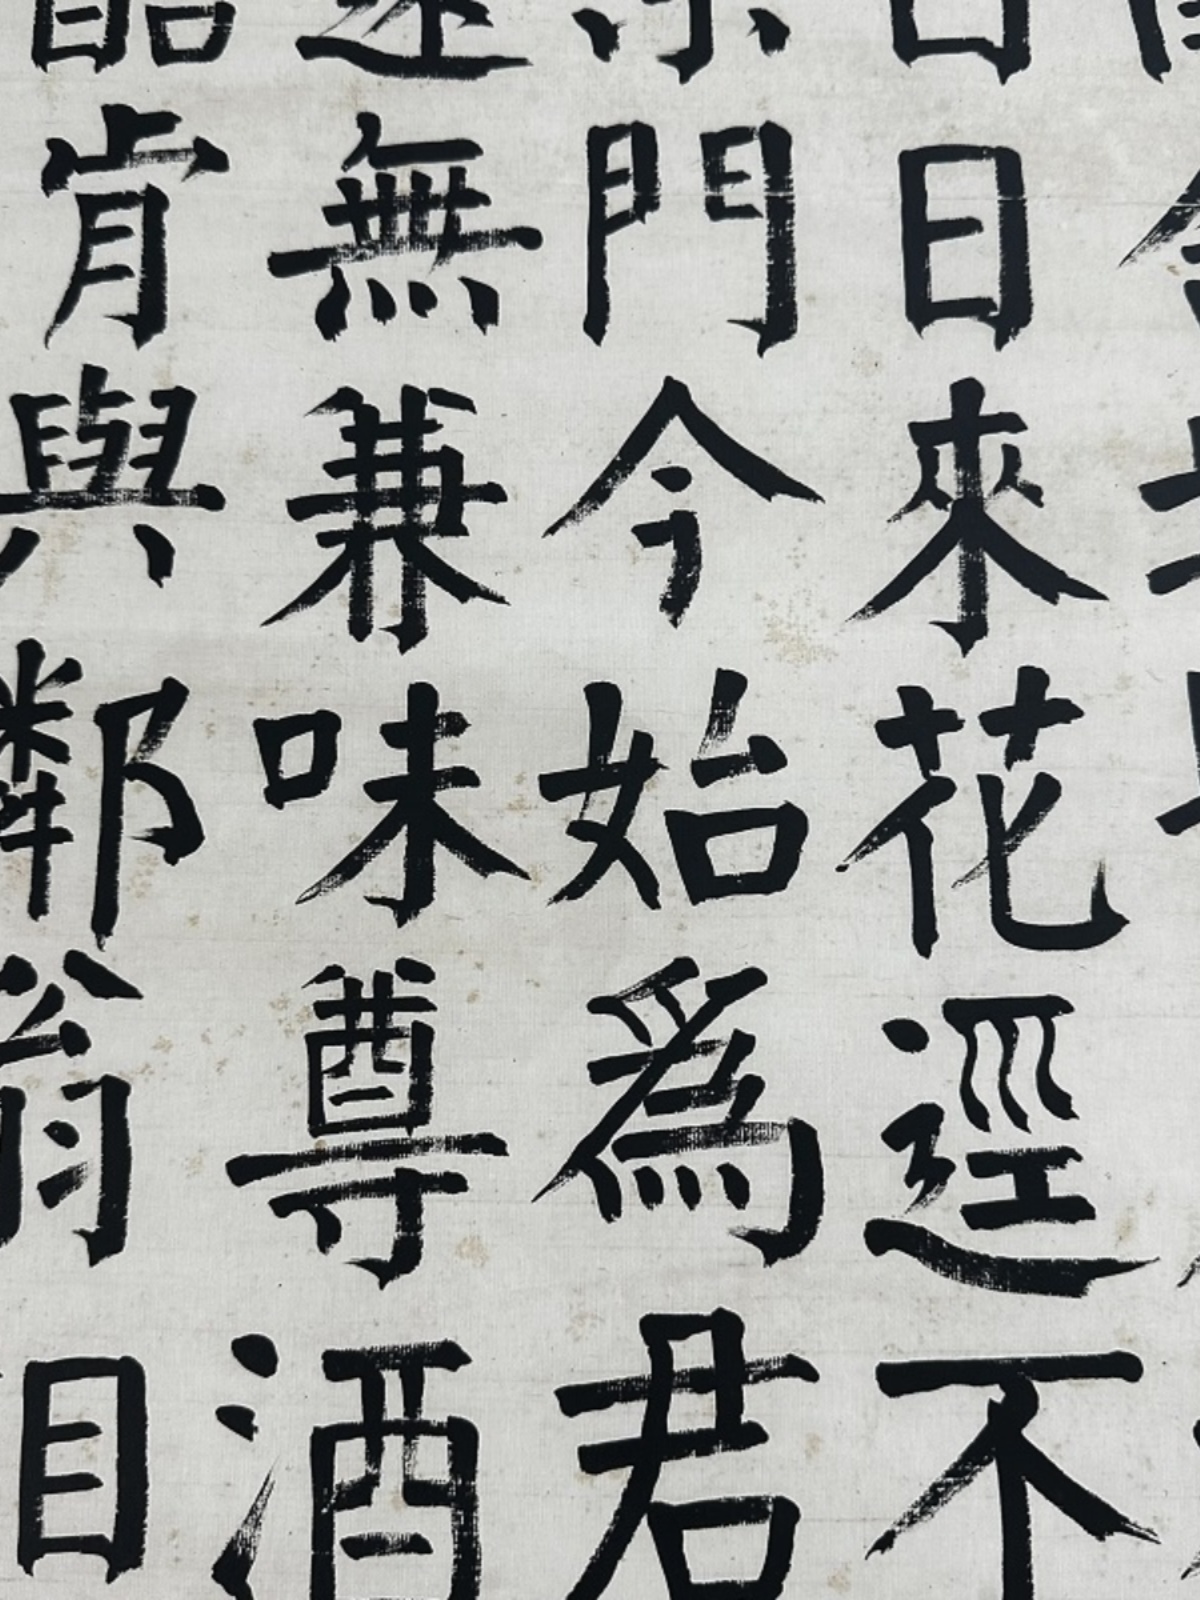 日來花逕不
門今始爲君
無兼味尊酒
肯與鄰翁